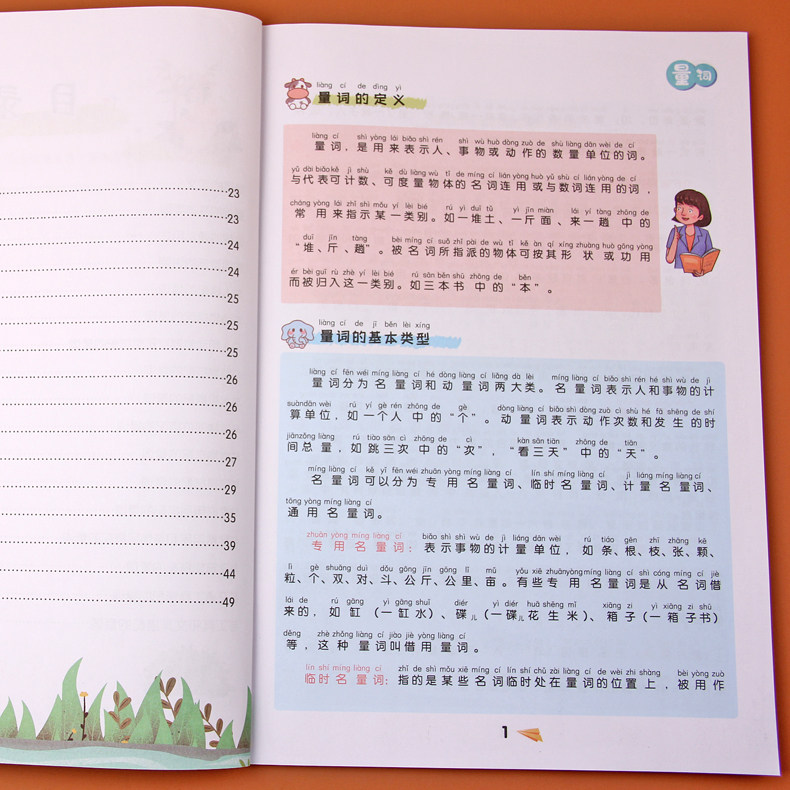 23
23
24
24
25
25
25
26
26
26
27
29
35
39
44
49
量词
liàng cí de dìng yì
量词的定义
liàng cí shì yòng lái biǎo shì rén shì wù huò dòng zuò de shù liàng dān wèi de cí
量词，是用来表示人、事物或动作的数量单位的词。
yǔ dài biǎo kě jì shù kě dù liàng wù tǐ de míng cí lián yòng huò yǔ shù cí lián yòng de cí
与代表可计数、可度量物体的名词连用或与数词连用的词，
cháng yòng lái zhǐ shì mǒu yí lèi bié rú yì duī tǔ yì jīn miàn lái yí tàng zhōng de
常用来指示某一类别。如一堆土、一斤面、来一趟中的
duī jīn tàng bèi míng cí suǒ zhǐ pài de wù tǐ kě àn qí xíng zhuàng huò gōng yòng
“堆、斤、趟”。被名词所指派的物体可按其形状或功用
ér bèi guī rù zhè yí lèi bié rú sān běn shū zhōng de běn
而被归入这一类别。如三本书中的“本”。
liàng cí de jī běn lèi xíng
量词的基本类型
liàng cí fēn wéi míng liàng cí hé dòng liàng cí liǎng dà lèi míng liàng cí biǎo shì rén hé shì wù de jì
量词分为名量词和动量词两大类。名量词表示人和事物的计
suàn dān wèi rú yí gè rén zhōng de gè dòng liàng cí biǎo shì dòng zuò cì shù hé fā shēng de shí
算单位，如一个人中的“个”。动量词表示动作次数和发生的时
jiān zǒng liàng rú tiào sān cì zhōng de cì kàn sān tiān zhōng de tiān
间总量，如跳三次中的“次”，“看三天”中的“天”。
míng liàng cí kě yǐ fēn wéi zhuān yòng míng liàng cí lín shí míng liàng cí jì liáng míng liàng cí
名量词可以分为专用名量词、临时名量词、计量名量词、
tōng yòng míng liàng cí
通用名量词。
zhuān yòng míng liàng cí biǎo shì shì wù de jì liàng dān wèi rú tiáo gēn zhī zhāng kē
专用名量词：表示事物的计量单位，如条、根、枝、张、颗、
lì gè shuāng duì dǒu gōng jīn gōng lǐ mǔ yǒu xiē zhuān yòng míng liàng cí shì cóng míng cí jiè
粒、个、双、对、斗、公斤、公里、亩。有些专用名量词是从名词借
lái de rú gāng yì gāng shuǐ diér yì diér huā shēng mǐ xiāng zi yì xiāng zi shū
来的，如缸（一缸水）、碟儿（一碟儿花生米）、箱子（一箱子书）
děng zhè zhǒng liàng cí jiào jiè yòng liàng cí
等，这种量词叫借用量词。
lín shí míng liàng cí zhǐ de shì mǒu xiē míng cí lín shí chǔ zài liàng cí de wèi zhi shàng bèi yòng zuò
临时名量词：指的是某些名词临时处在量词的位置上，被用作
1